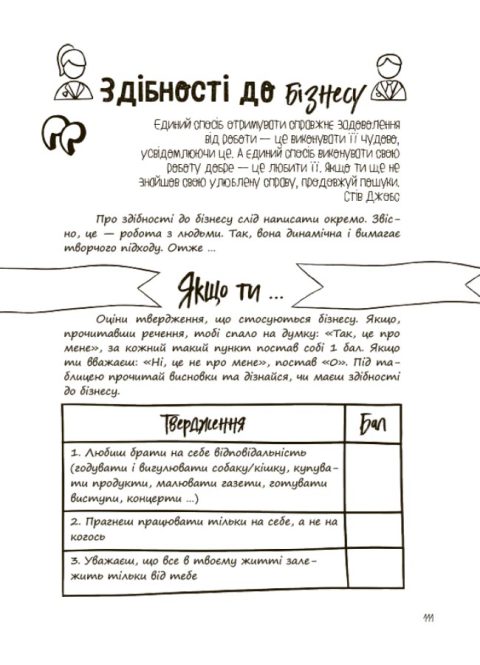 Здібності до бізнесу
Єдиний спосіб отримувати справжнє задоволення
від роботи — це виконувати її чудово,
усвідомлюючи це. А єдиний спосіб виконувати свою
роботу добре — це любити її. Якщо ти ще не
знайшов свою улюблену справу, продовжуй пошуки.
Стів Джобс
Про здібності до бізнесу слід написати окремо. Звіс-
но, це — робота з людьми. Так, вона динамічна і вимагає
творчого підходу. Отже ...
Якщо ти ...
Оціни твердження, що стосуються бізнесу. Якщо,
прочитавши речення, тобі спало на думку: «Так, це про
мене», за кожний такий пункт постав собі 1 бал. Якщо
ти вважаєш: «Ні, це не про мене», постав «О». Під та-
блицею прочитай висновки та дізнайся, чи маєш здібності
до бізнесу.
Твердження Бал
1. Любиш брати на себе відповідальність
(годувати і вигулювати собаку/кішку, купува-
ти продукти, малювати газети, готувати
виступи, концерти ...)
2. Прагнеш працювати тільки на себе, а не на
когось
3. Уважаєш, що все в твоєму житті зале-
жить тільки від тебе
111